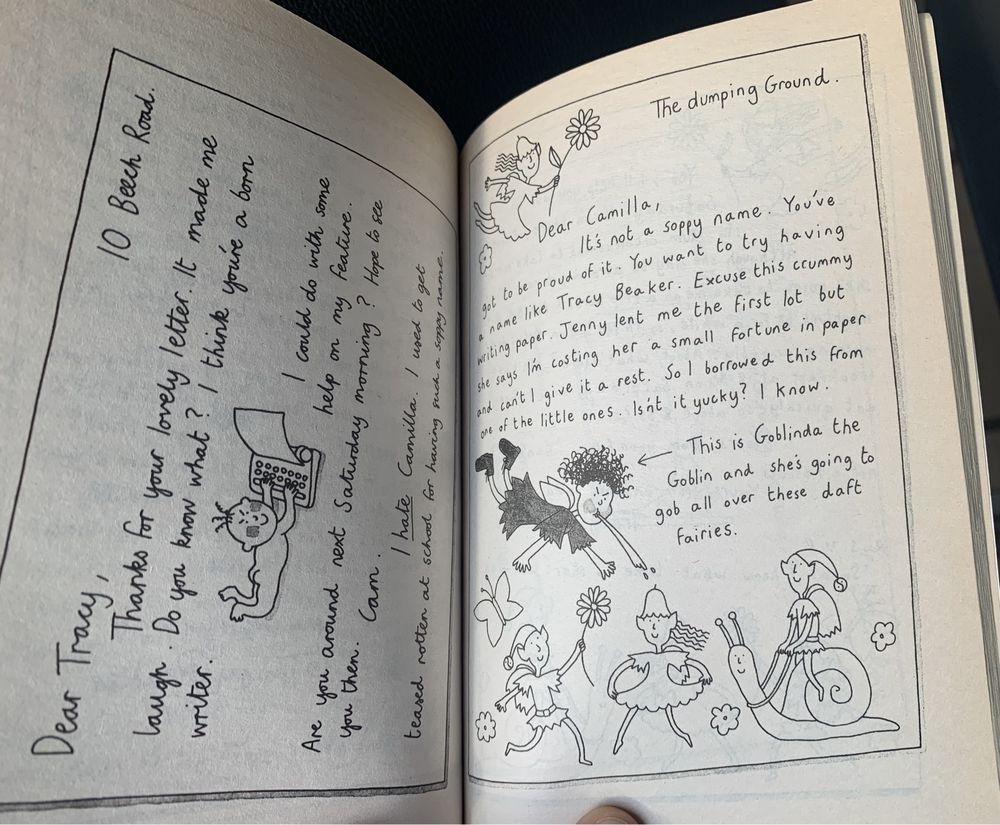 10 Beech Road.
Dear Tracy,
Thanks for your lovely letter. It made me
laugh. Do you know what? I think you're a born
writer.
I could do with some
help on my feature.
Are you around next Saturday morning? Hope to see
you then. Cam.
I hate Camilla. I used to get
teased rotten at school for having such a soppy name.
The dumping Ground.
Dear Camilla,
It's not a soppy name. You've
got to be proud of it. You want to try having
a name like Tracy Beaker. Excuse this crummy
writing paper. Jenny lent me the first lot but
she says I'm costing her a small fortune in paper
and can't I give it a rest. So I borrowed this from
one of the little ones. Isn't it yucky? I know.
This is Goblinda the
Goblin and she's going to
gob all over these daft
fairies.